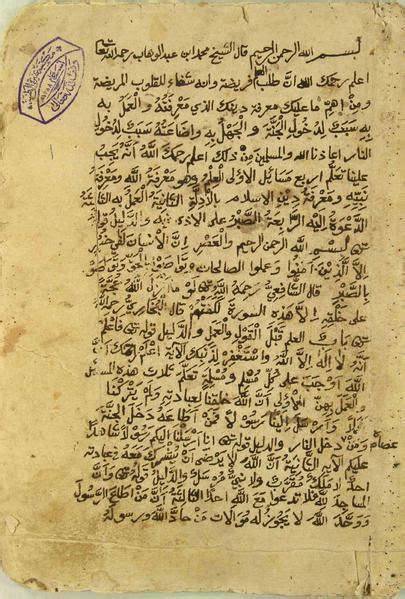 بسم الله الرحمن الرحيم قال الشيخ محمد ابن عبد الوهاب رحمه الله تعا
اعلم رحمك الله ان طلب العلم فريضة وانه شفاء للقلوب المريضة
ومن اهم ما عليك معرفة دينك الذي معرفته والعمل به
به سبب لدخول الجنة والجهل به واضاعته سبب لدخول
النار اعاذنا الله والمسلمين من ذلك اعلم رحمك الله انه يجب
علينا تعلم اربع مسائل الاولى العلم وهو معرفة الله ومعرفة
نبيه ومعرفة دين الاسلام بالادلة الثانية العمل به الثالثة
الدعوة اليه الرابعة الصبر على الاذى فيه والدليل قوله
تعا بسم الله الرحمن الرحيم والعصر ان الانسان لفي خسر
الا الذين امنوا وعملوا الصالحات وتواصوا بالحق وتواصوا
بالصبر قال الشافعي رحمه الله تعا لو ما انزل الله حجة
على خلقه الا هذه السورة لكفتهم قال البخاري رحمه الله
تعا باب العلم قبل القول والعمل والدليل قوله تعا فاعلم
انه لا اله الا الله واستغفر لذنبك الآية اعلم رحمك ان
الله اوجب على كل مسلم ومسلمة تعلم ثلاث هذه المسايل
العمل بهن الاولى ان الله خلقنا لعبادته ولم يتركنا
هملا وارسل الينا رسولا فمن اطاعه دخل الجنة
ومن عصاه دخل النار والدليل قوله تعا انا ارسلنا اليكم رسولا شاهدا
عليكم الآية الثانية ان الله لا يرضى ان يشرك معه في عبادته
احدا لا ملك مقرب ولا نبي مرسل والدليل قوله تعا وان
المساجد لله فلا تدعوا مع الله احدا الثالثة ان من اطاع الرسول
ووحد الله لا يجوز له موالات من حاد الله ورسوله